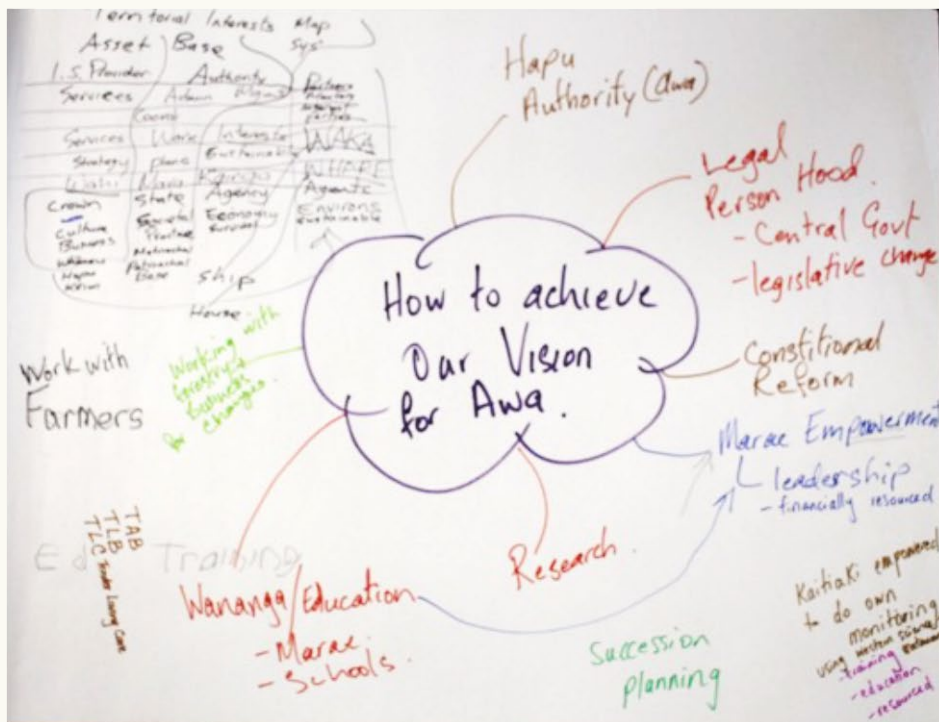 Territorial Interests Map
Asset Base Sys
I.S. Provider Authority
Services Admin Mgmt
Services Work Interests WAKA
Strategy plans Sustainable WHARE
Crown State Agency Agents
Culture Societal Economy Environs
Business Practice Survival Sustainable
Matriarchal
Patriarchal
Base
Ship
House
Hapu
Authority (awa)
Legal
Person Hood.
- Central Govt
- legislative change
How to achieve
Our Vision
for Awa.
Constitional
Reform
Marae Empowerment
leadership
- financially resourced
Working with
forestry +
Business
for changes.
Work with
Farmers
TAB
TLB
TLC Tender Loving Care
Training
Wananga/Education
- Marae
- Schools.
Research.
Succession
planning
Kaitiaki empowered
to do own
monitoring
using western science
- training
- education
- resourced